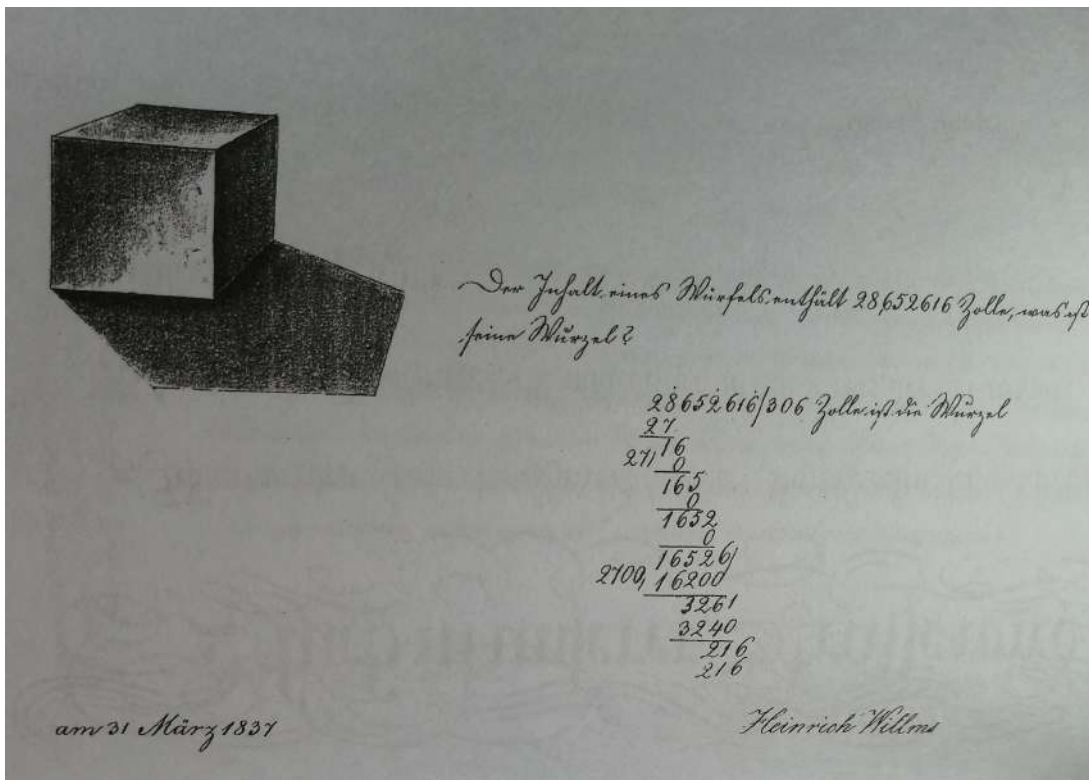 Der Inhalt eines Würfels enthält 28652616 Zolle, was ist
seine Wurzel?
28652616/306 Zolle ist die Wurzel
27
16
27/ 0
165
0
1652
0
16526/
2700, 16200
3261
3240
216
216
am 31 März 1837
Heinrich Willms